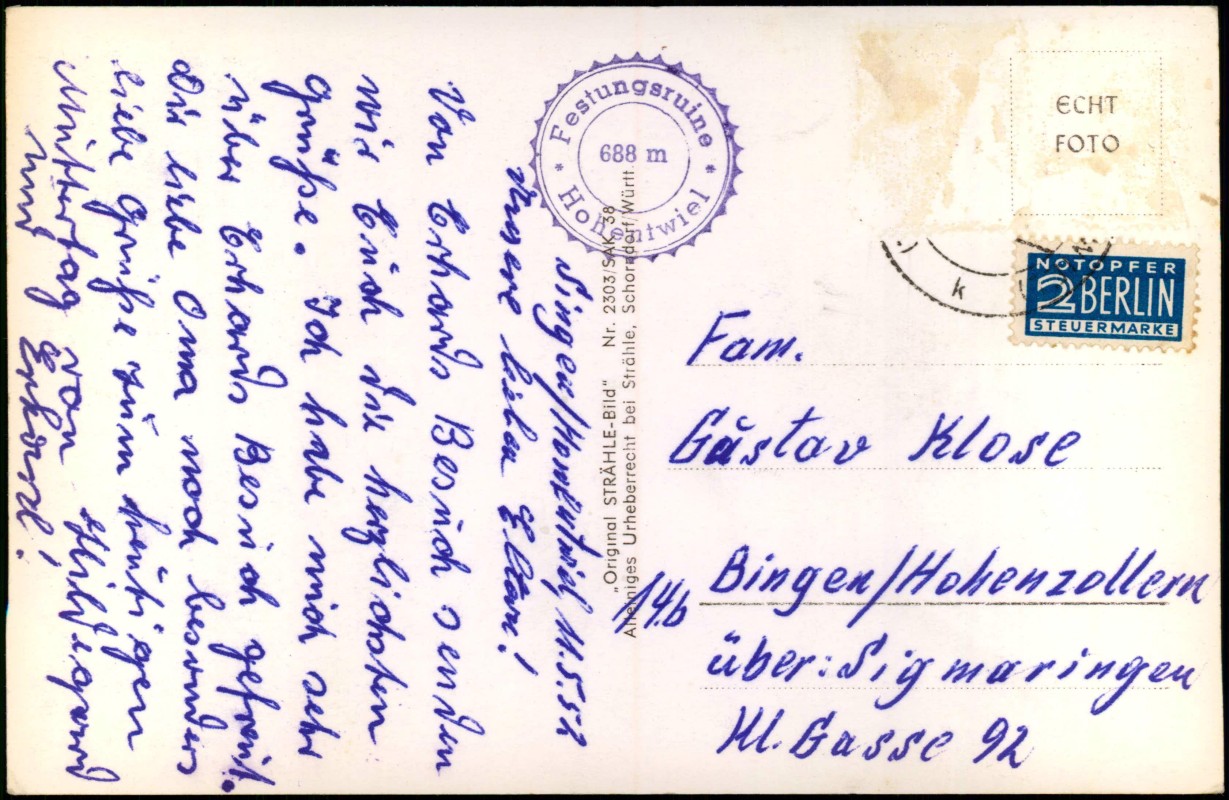 Singen/Hohentwiel 11.5.52
Unsere lieben Eltern!
Von Erhards Besuch senden
wir Euch die herzlichsten
Grüße. Ich habe mich sehr
über Erhards Besuch gefreut.
Dir liebe Oma noch besonders
liebe Grüße zum heutigen
Muttertag von Hildegard
und Erhard!
Festungsruine
688 m
* Hohentwiel *
"Original STRÄHLE-Bild" Nr. 2303/SAK 38
Alleiniges Urheberrecht bei Strähle, Schorndorf/Württ
ECHT
FOTO
k
NOTOPFER
2 BERLIN
STEUERMARKE
Fam.
Gustav Klose
14b Bingen/Hohenzollern
über: Sigmaringen
Hl. Gasse 92